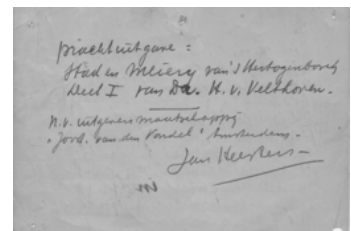 prachtuitgave :
Stad en Meiery van 's Hertogenbosch
Deel I van Dr. H. v. Velthoven.
N.V. uitgevers maatschappij
"Joost van den Vondel" Amsterdam.
Jan